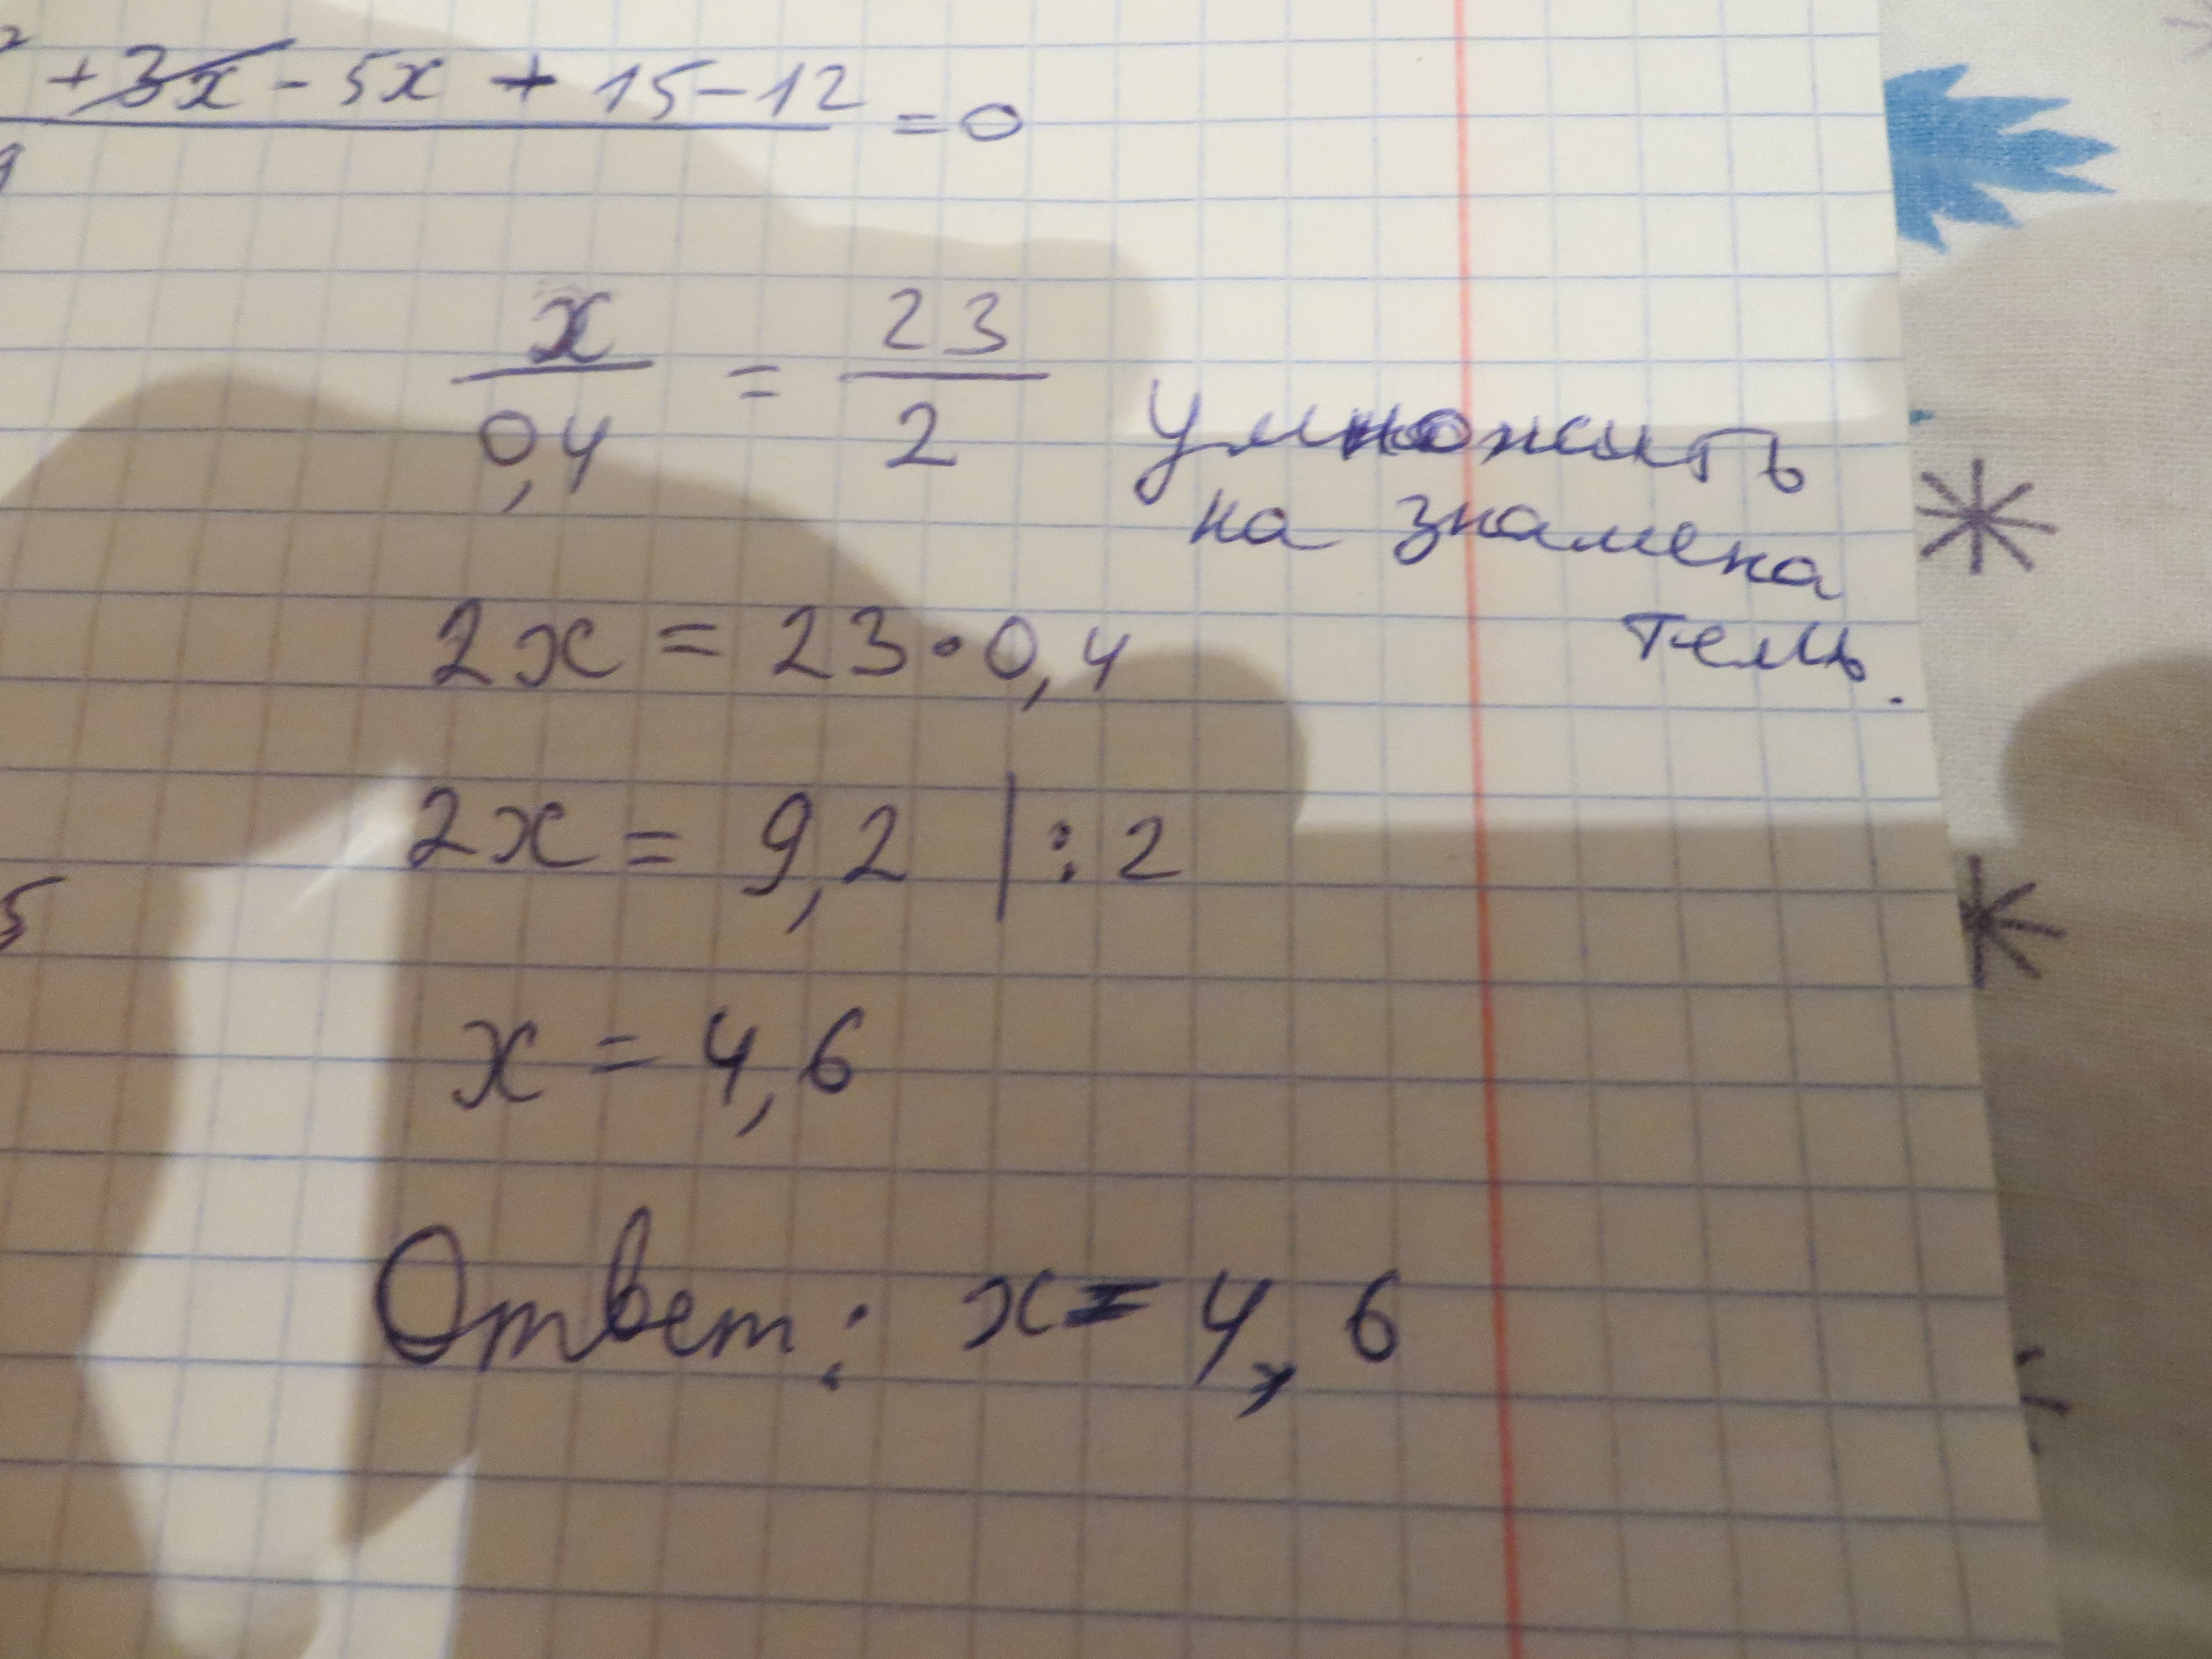 ² + 3x - 5x + 15 - 12 = 0
9
x/0,4 = 23/2
умножить
на знамена
тель.
2x = 23 · 0,4
2x = 9,2 | : 2
5
x = 4,6
Ответ: x = 4,6